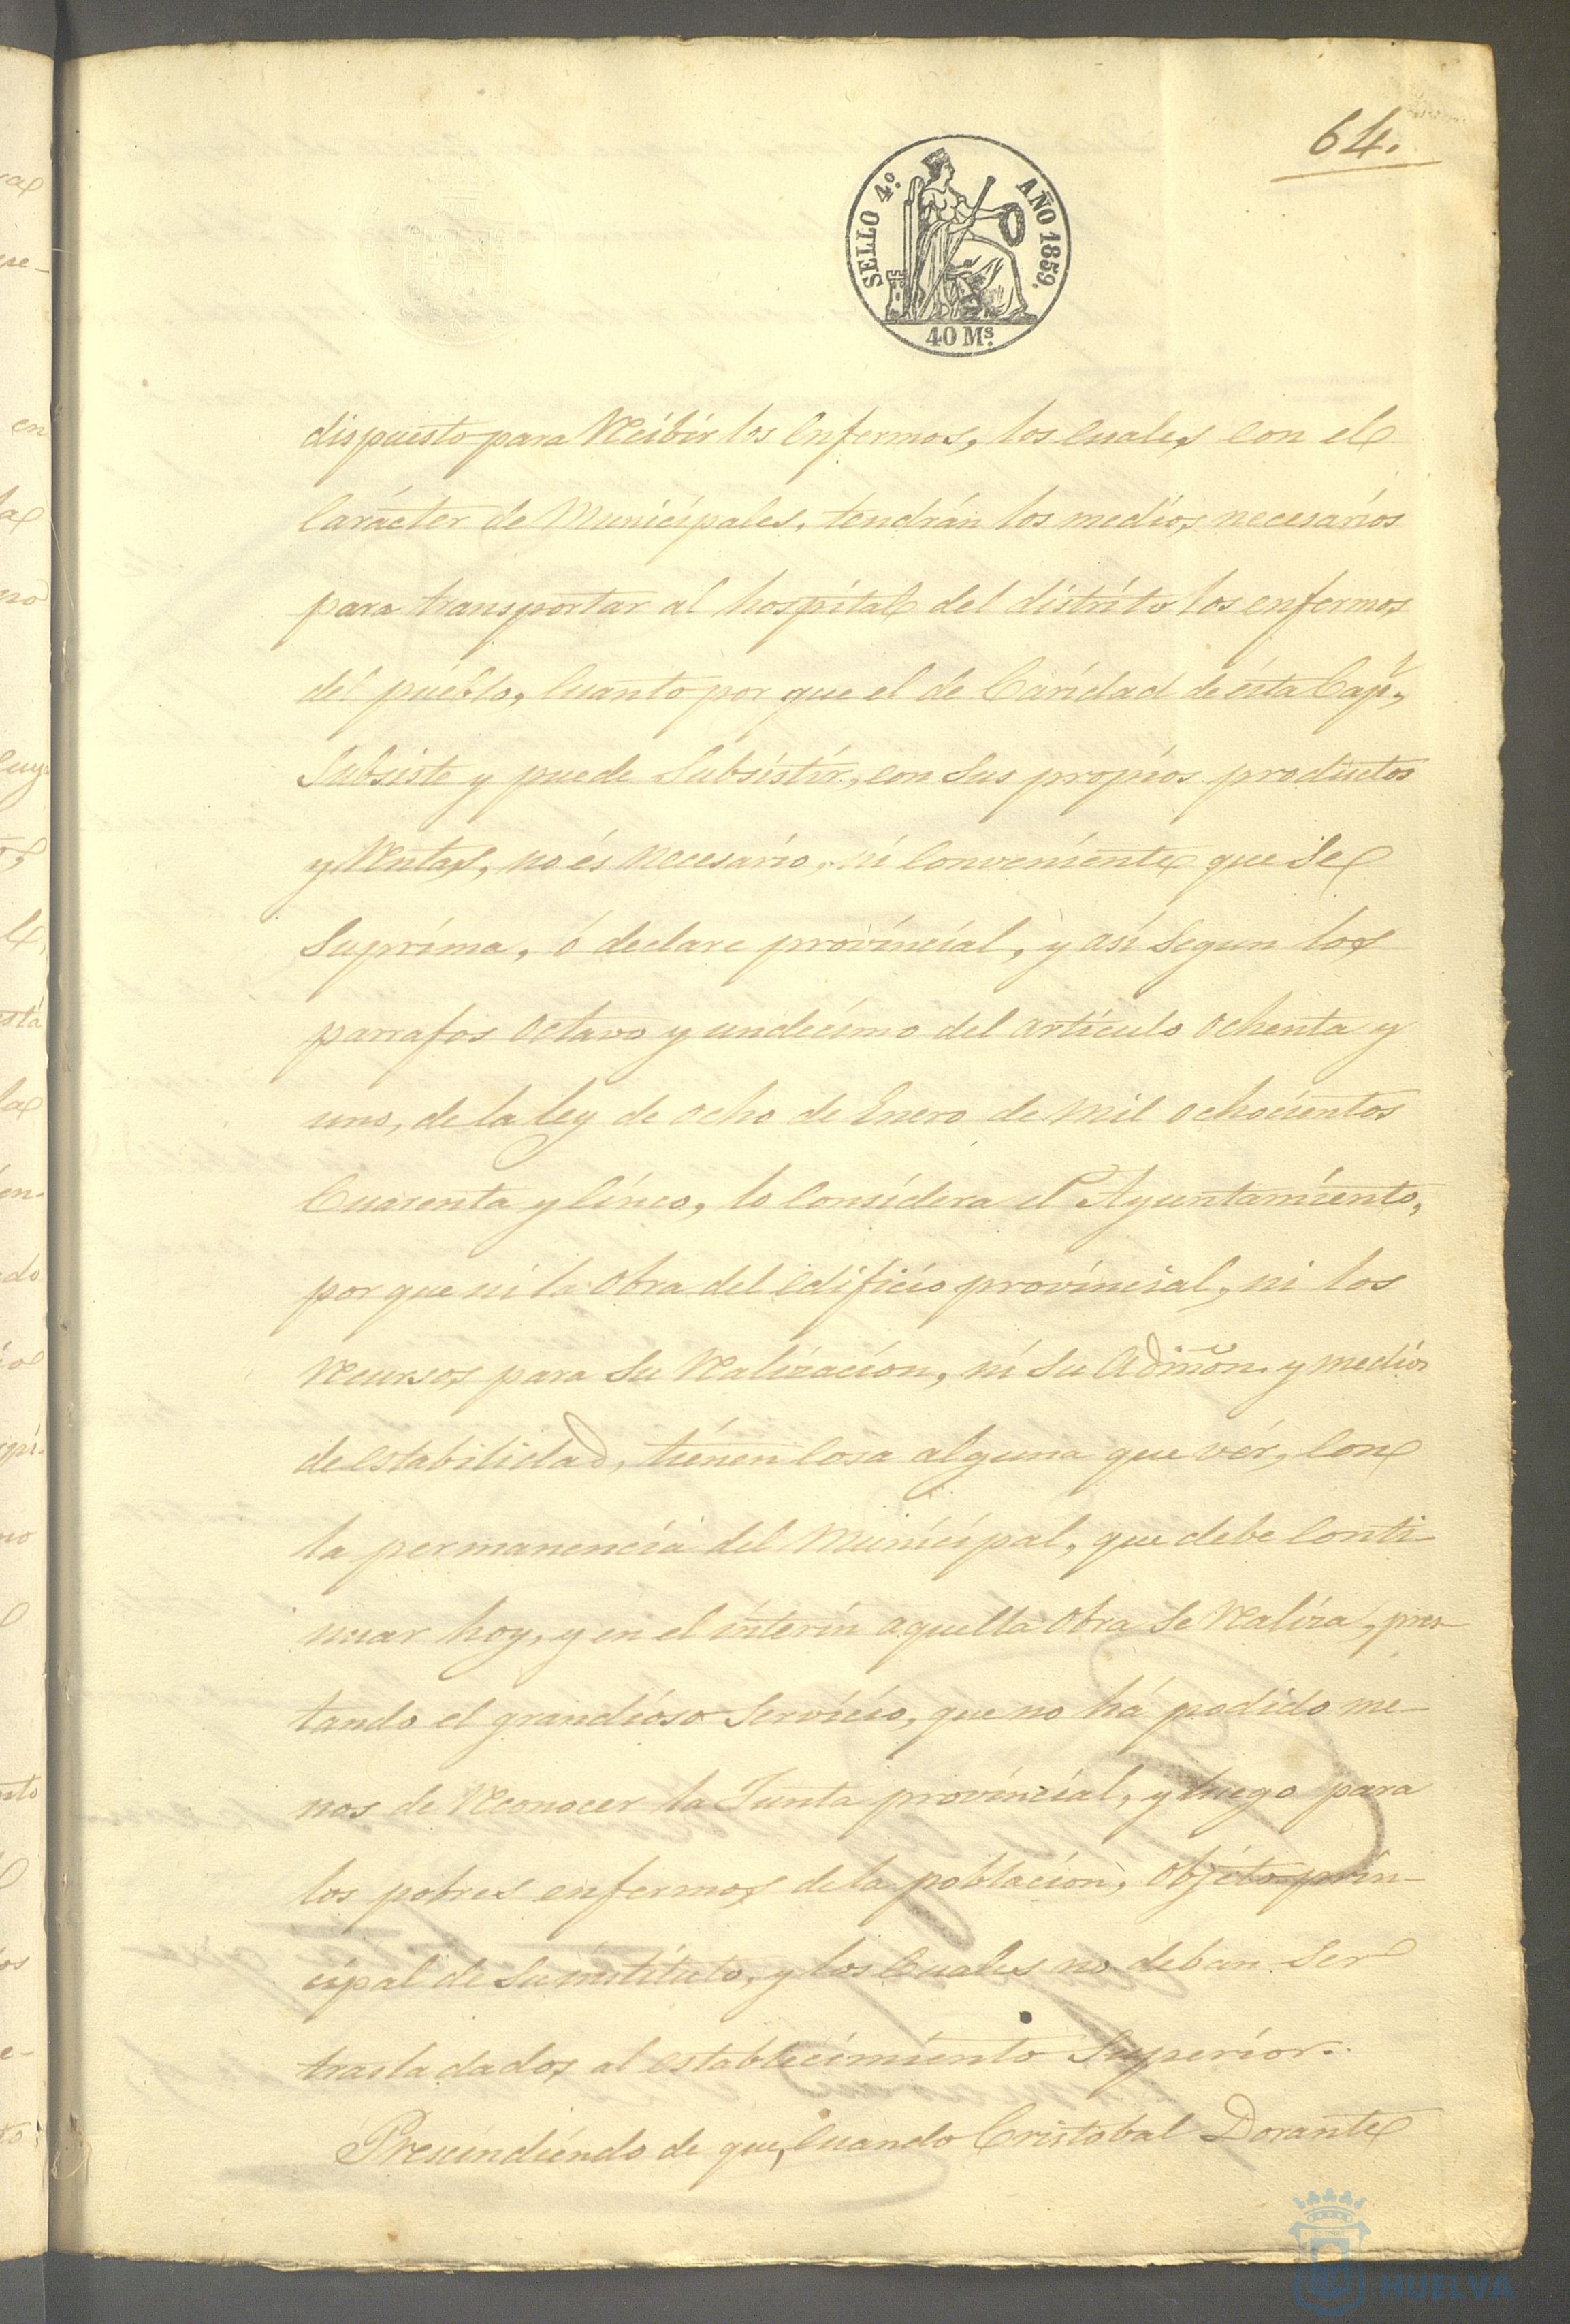 64.
SELLO 4.º AÑO 1859.
40 Mˢ.
dispuesto para Recibir los enfermos, los cuales con el
Carácter de Municipales, tendrán los medios necesarios
para transportar al hospital del distrito los enfermos
del pueblo, Cuanto por que el de Caridad de ésta Capˡ,
Subsiste y puede Subsistir, con sus propios productos
y Rentas, no és necesario, ni Conveniente que se
Suprima, ó declare provincial, y así Segun los
parrafos octavo y undecimo del artículo ochenta y
uno, de la ley de ocho de Enero de mil ochocientos
Cuarenta y Cinco, lo Considera el Ayuntamiento,
por que ni la obra del edificio provincial, ni los
Recursos para su Realizacion, ni su Admõn. y medios
de estabilidad, tienen Cosa alguna que vér, Con
la permanencia del Municipal, que debe Conti-
nuar hoy, y en el interin aquella obra se Realiza, pres-
tando el grandioso servicio, que no há podido me-
nos de Reconocer la Junta provincial, y luego para
los pobres enfermos de la poblacion, objeto prin-
cipal de su instituto, y los Cuales no deban ser
trasladados al establecimiento Superior.
Prescindiendo de que, Cuando Cristobal Dorante
HUELVA